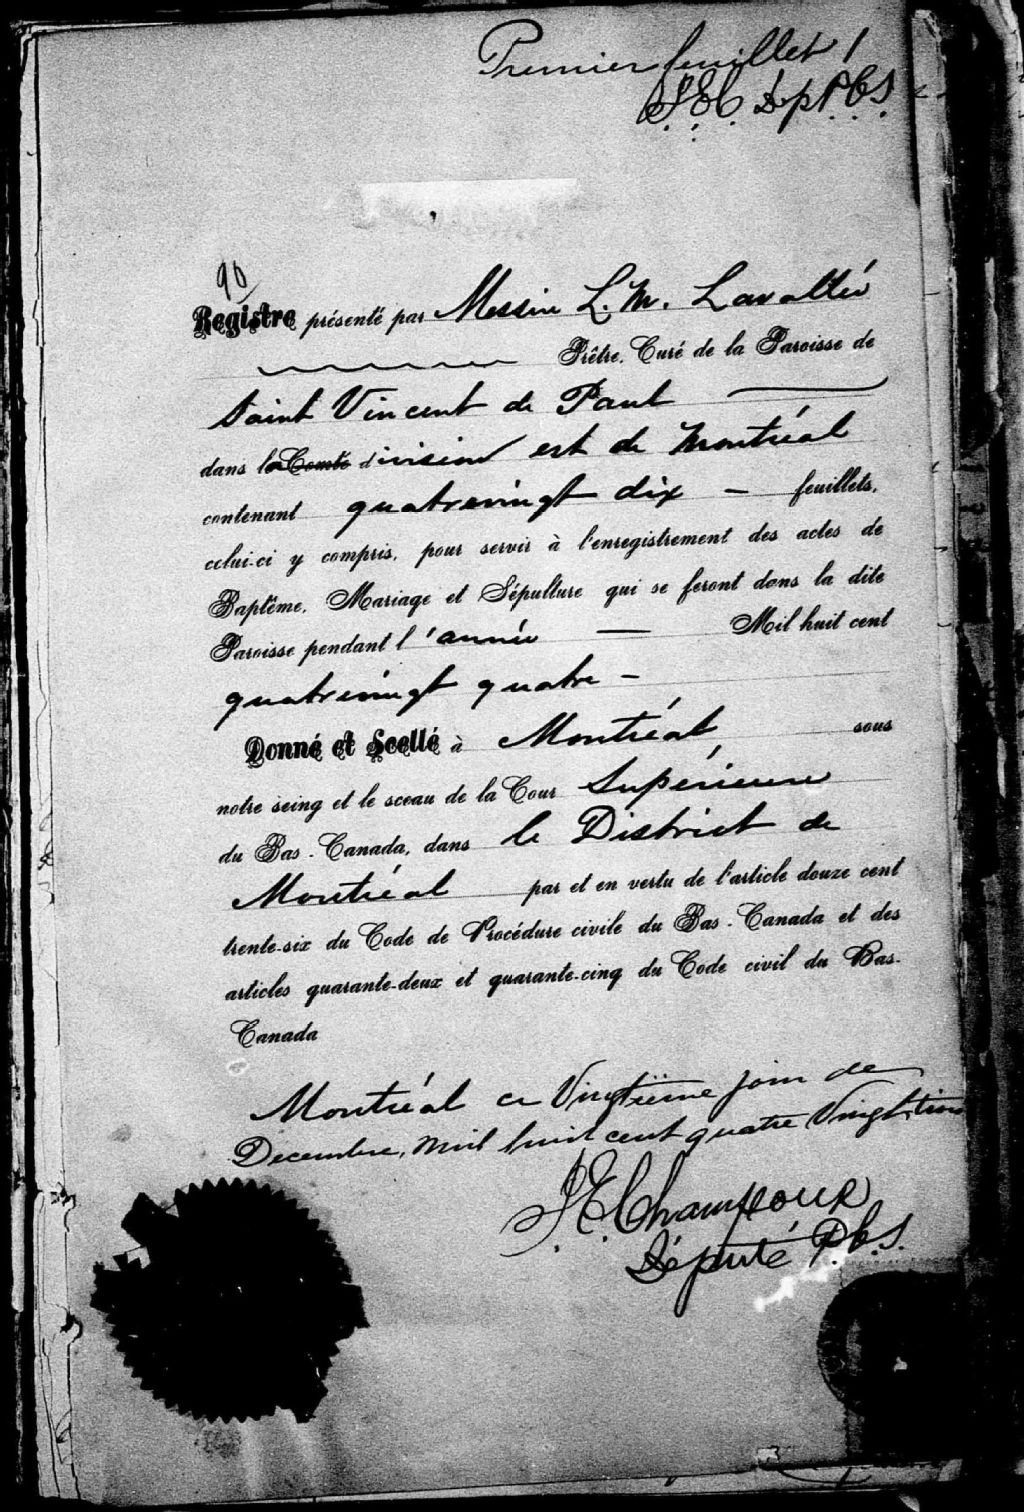 Premier feuillet /
J.E.C. Dép P.C.S.
90
Registre présenté par Messire L. M. Lavallée
Prêtre, Curé de la Paroisse de
Saint Vincent de Paul
dans la Comté division est de Montréal
contenant quatrevingt dix — feuillets,
celui-ci y compris, pour servir à l'enregistrement des actes de
Baptême, Mariage et Sépulture qui se feront dans la dite
Paroisse pendant l'année — Mil huit cent
quatrevingt quatre –
Donné et Scellé à Montréal sous
notre seing et le sceau de la Cour Supérieure
du Bas-Canada, dans le District de
Montréal par et en vertu de l'article douze cent
trente-six du Code de Procédure civile du Bas-Canada et des
articles quarante-deux et quarante-cinq du Code civil du Bas-
Canada
Montréal ce Vingtième jour de
Decembre, mil huit cent quatre Vingt trois
J.E. Champoux
Député P.C.S.